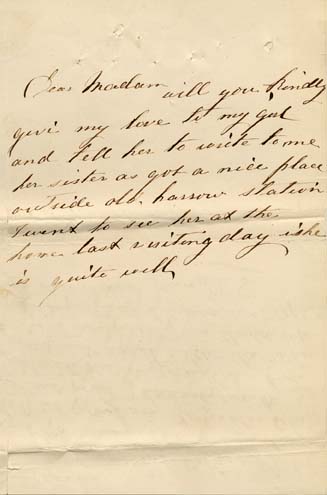 Dear Madam will you kindly
give my love to my girl
and tell her to write to me
her sister as got a nice place
outside old harrow station
I went to see her at the
home last visiting day ishe
is quite well